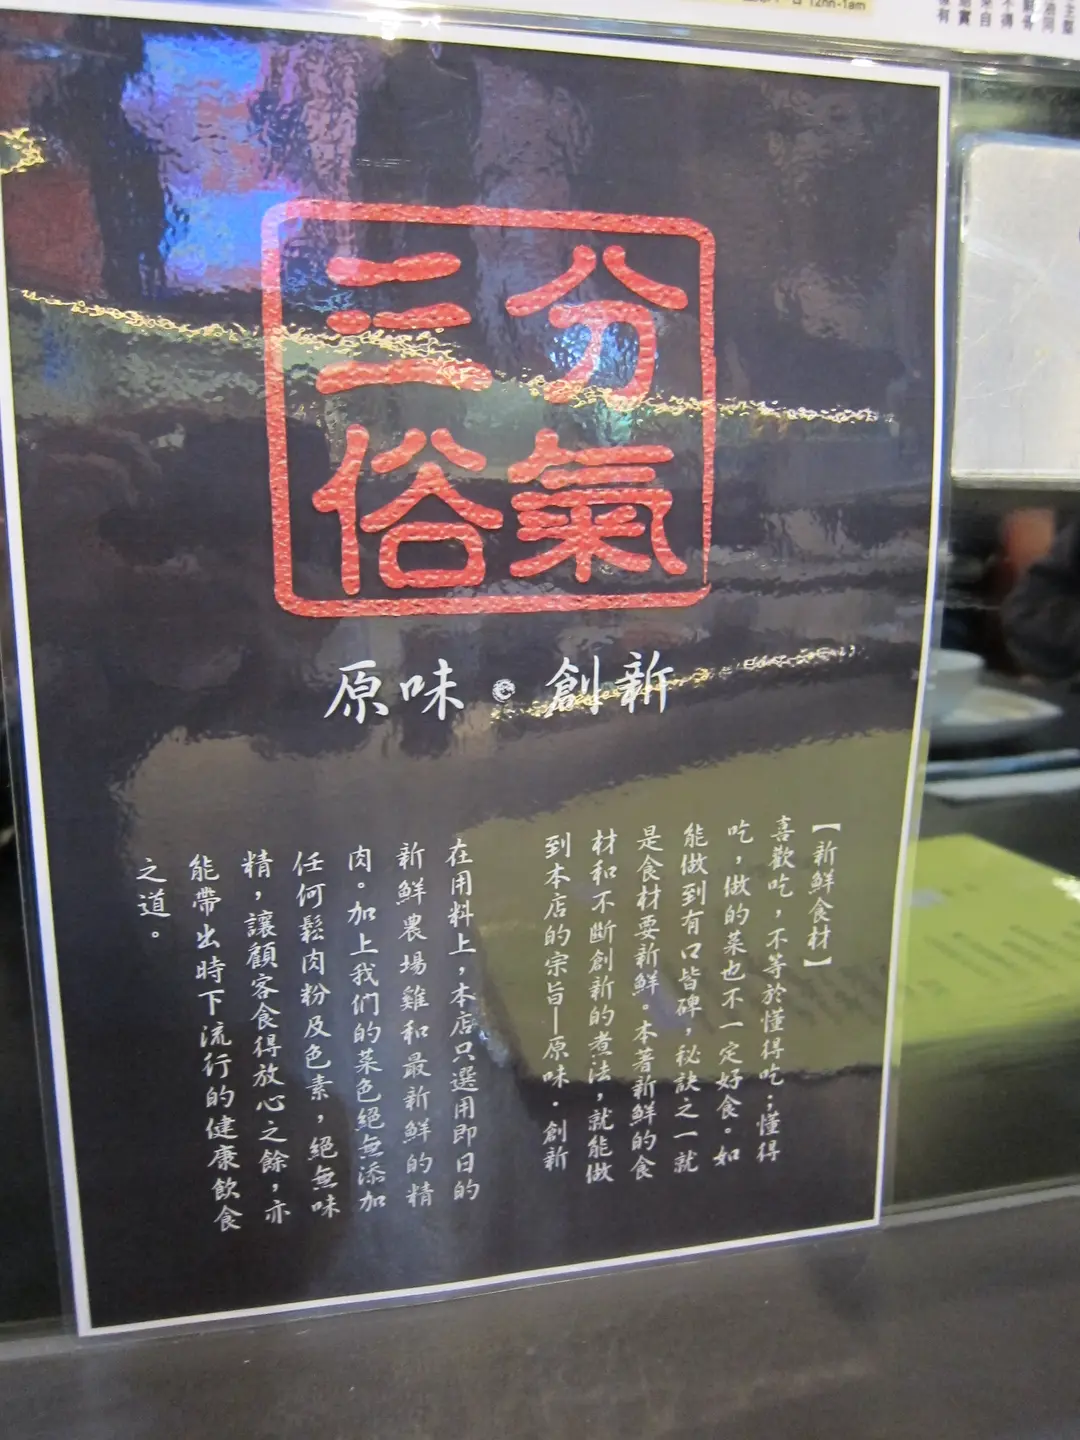 12nn-1am
三分
俗氣
原味。創新
【新鮮食材】
喜歡吃，不等於懂得吃；懂得
吃，做的菜也不一定好食。如
能做到有口皆碑，秘訣之一就
是食材要新鮮。本著新鮮的食
材和不斷創新的煮法，就能做
到本店的宗旨—原味．創新
在用料上，本店只選用即日的
新鮮農場雞和最新鮮的精
肉。加上我們的菜色絕無添加
任何鬆肉粉及色素，絕無味
精，讓顧客食得放心之餘，亦
能帶出時下流行的健康飲食
之道。